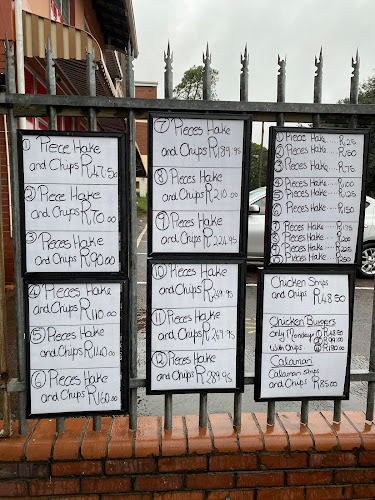 ① Piece Hake
and Chips R47.50
② Piece Hake
and Chips R70.00
③ Pieces Hake
and Chips R90.00
④ Pieces Hake
and Chips R110.00
⑤ Pieces Hake
and Chips R140.00
⑥ Pieces Hake
and Chips R160.00
⑦ Pieces Hake
and Chips R189.95
⑧ Pieces Hake
and Chips R210.00
⑨ Pieces Hake
and Chips R224.95
⑩ Pieces Hake
and Chips
⑪ Pieces Hake
and Chips R269.95
⑫ Pieces Hake
and Chips R289.00
① Piece Hake .... R25
② Pieces Hake .... R50
③ Pieces Hake .... R75
④ Pieces Hake .... R100
⑤ Pieces Hake .... R125
⑥ Pieces Hake .... R150
⑦ Pieces Hake .... R175
⑧ Pieces Hake .... R200
Pieces Hake .... R225
Pieces Hake .... R250
Chicken Strips
and Chips R48.50
Chicken Burgers
only Mondays ① R48.50
② R99.00
With Chips ④ R180.00
Calamari
Calamari Strips
and Chips R85.00